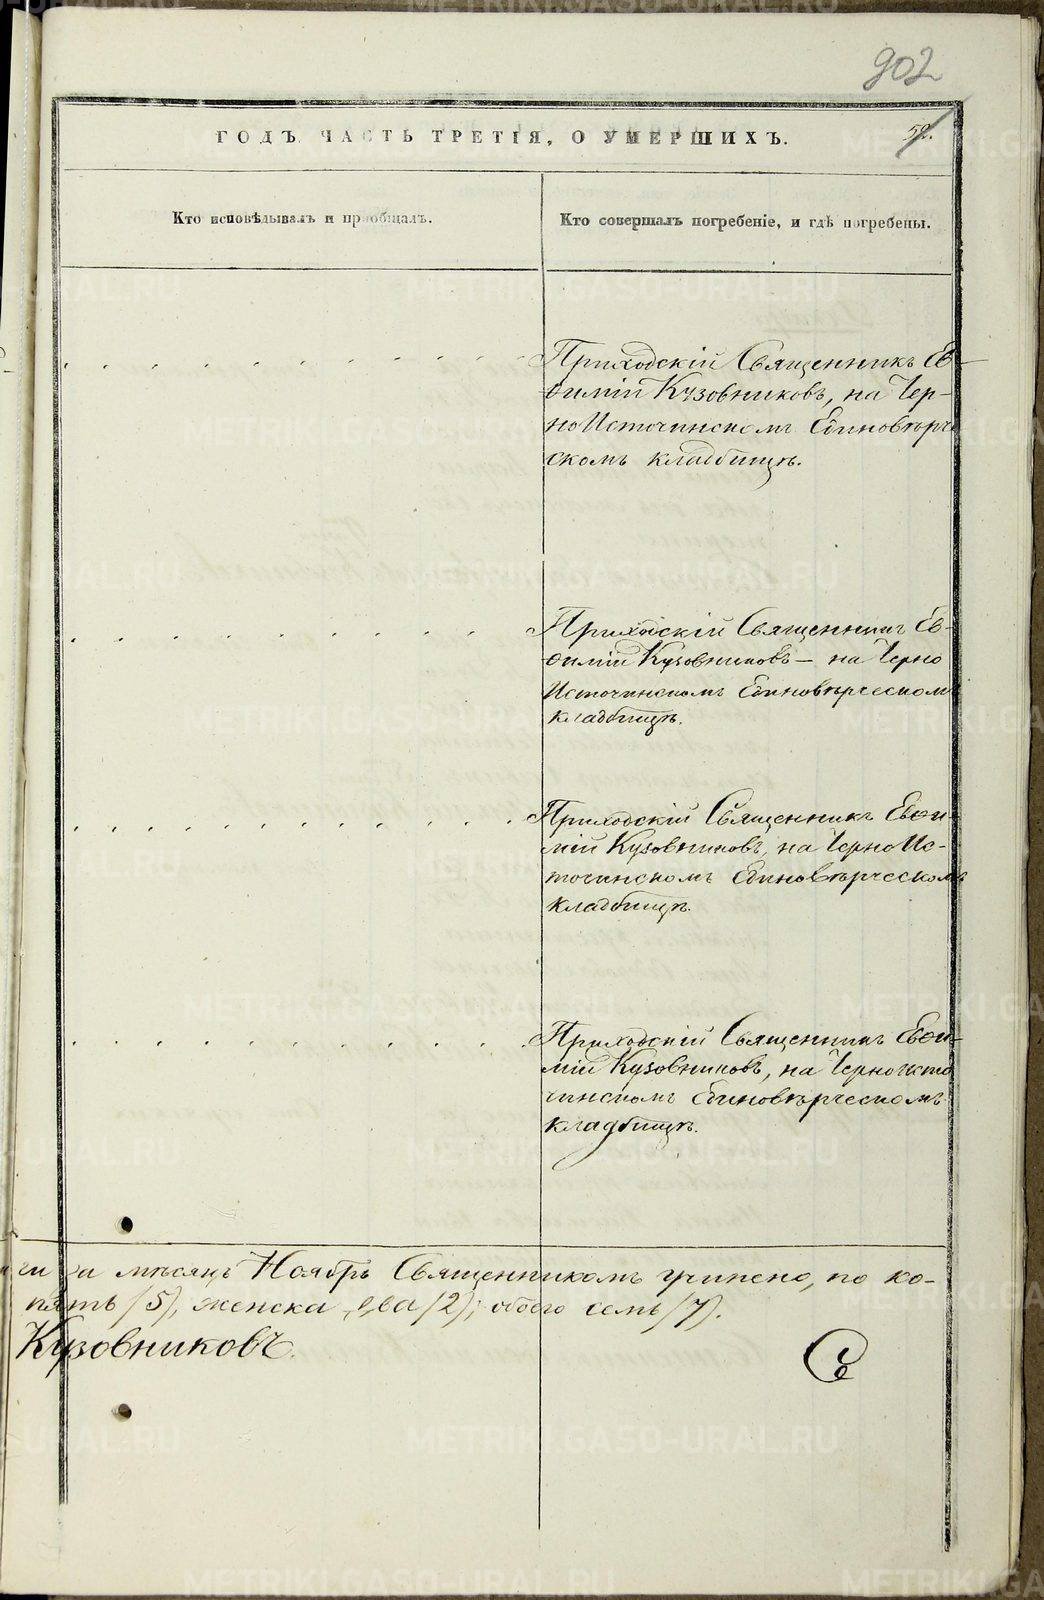 902
ГОДЪ ЧАСТЬ ТРЕТІЯ, О УМЕРШИХЪ.
59.
Кто исповѣдывалъ и пріобщалъ.
Кто совершалъ погребеніе, и гдѣ погребены.
Приходскій Священникъ Ев-
ѳимій Кузовниковъ, на Чер-
но Источинскомъ Единовѣрче
скомъ кладбищѣ.
Приходскій Священникъ Ев-
ѳимій Кузовниковъ – на Черно
Источинскомъ Единовѣрческомъ
кладбищѣ.
Приходскій Священникъ Евѳи-
мій Кузовниковъ, на Черно Ис-
точинскомъ Единовѣрческомъ
кладбищѣ.
Приходскій Священникъ Евѳи-
мій Кузовниковъ, на Черноисто
чинскомъ Единовѣрческомъ
кладбищѣ.
ги за мѣсяцъ Ноябрь Священникомъ учинено, по ко-
пять /5/, женска два /2/; обоего семь /7/.
Кузовниковъ.
METRIKI.GASO-URAL.RU